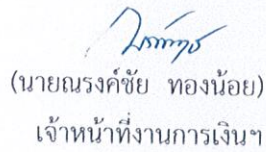 (นายณรงค์ชัย ทองน้อย)
เจ้าหน้าที่งานการเงินฯ